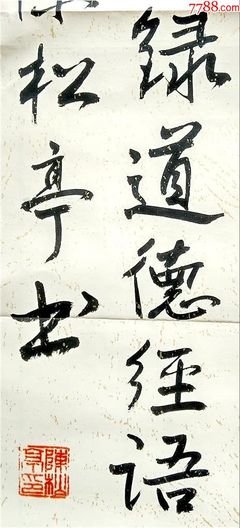 7788.com
録道德经语
陈松亭书
陳松亭印